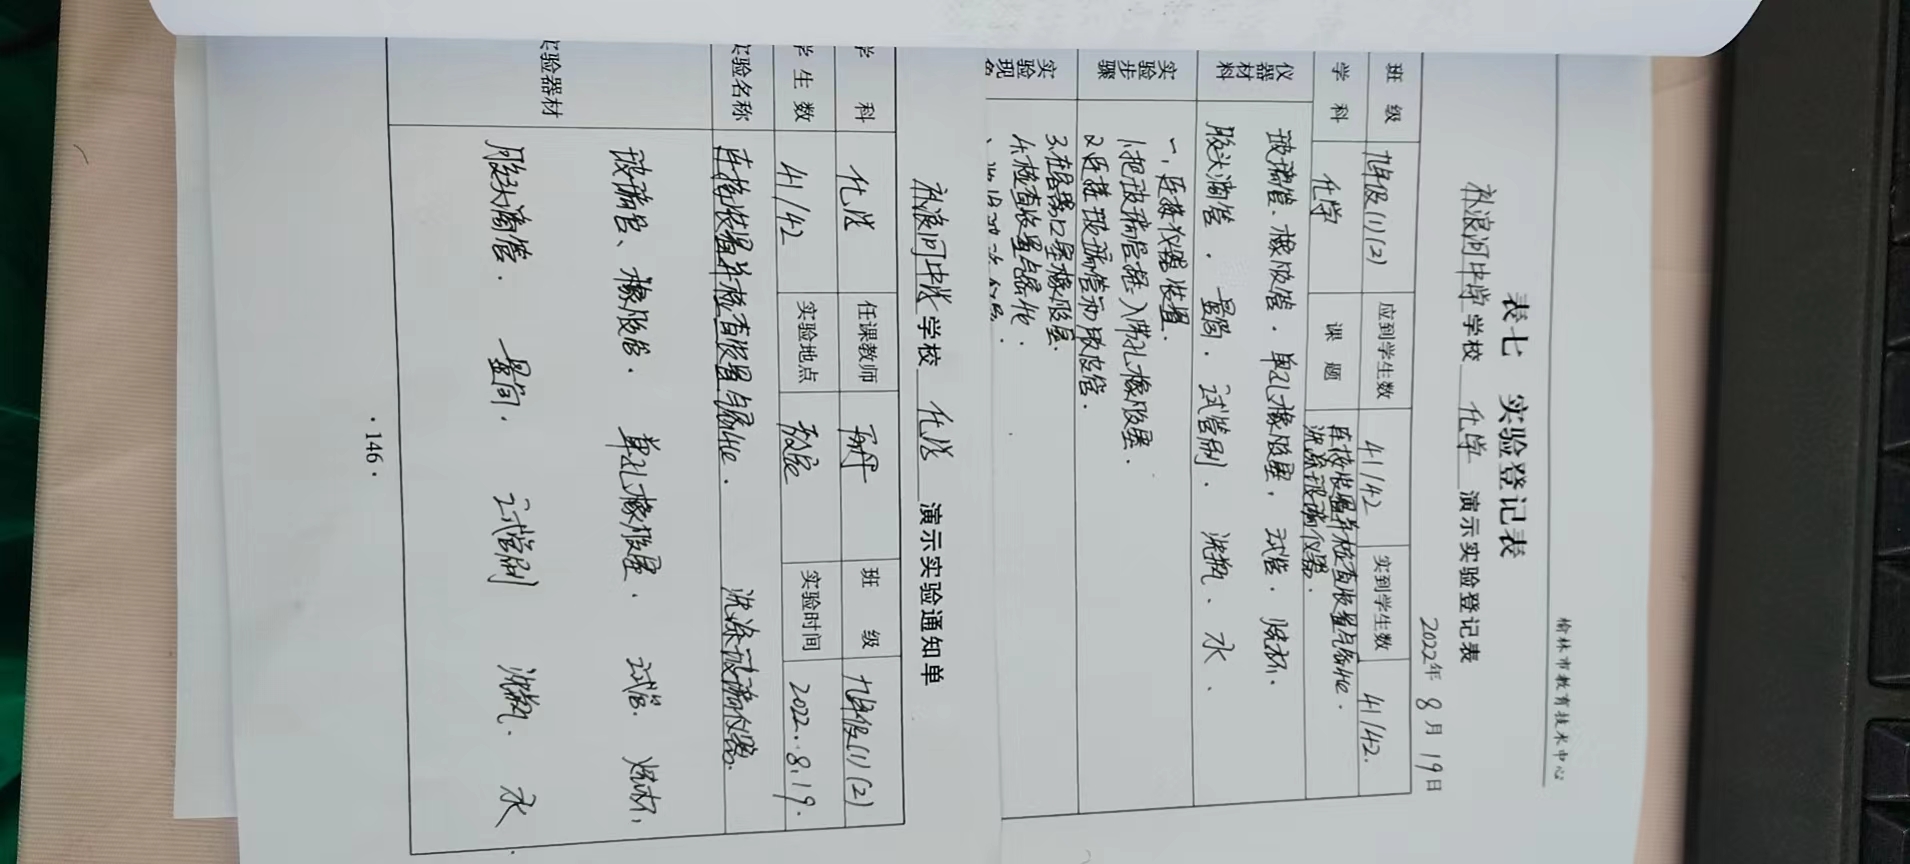 榆林市教育技术中心
表七 实验登记表
补浪河中学学校 化学 演示实验登记表
2022年8月19日
班级 九年级(1)(2) 应到学生数 41/42 实到学生数 41/42.
学科 化学 课题 连接装置并检查装置气密性.
洗涤玻璃仪器.
仪器材料 玻璃管、橡胶管.单孔橡胶塞.试管.烧杯.
胶头滴管.量筒.试管刷.洗瓶.水.
实验步骤 一,连接仪器装置.
1.把玻璃管插入带孔橡胶塞.
2.连接玻璃管和橡胶管.
3.在容器口塞橡胶塞.
4.检查装置气密性.
实验现
补浪河中学学校 化学 演示实验通知单
学科 化学 任课教师 班级 九年级(1)(2)
学生数 41/42 实验地点 实验时间 2022.8.19.
实验名称 连接装置并检查装置气密性. 洗涤玻璃仪器.
实验器材 玻璃管、橡胶管.单孔橡胶塞.试管.烧杯,
胶头滴管.量筒.试管刷 洗瓶.水
·146·